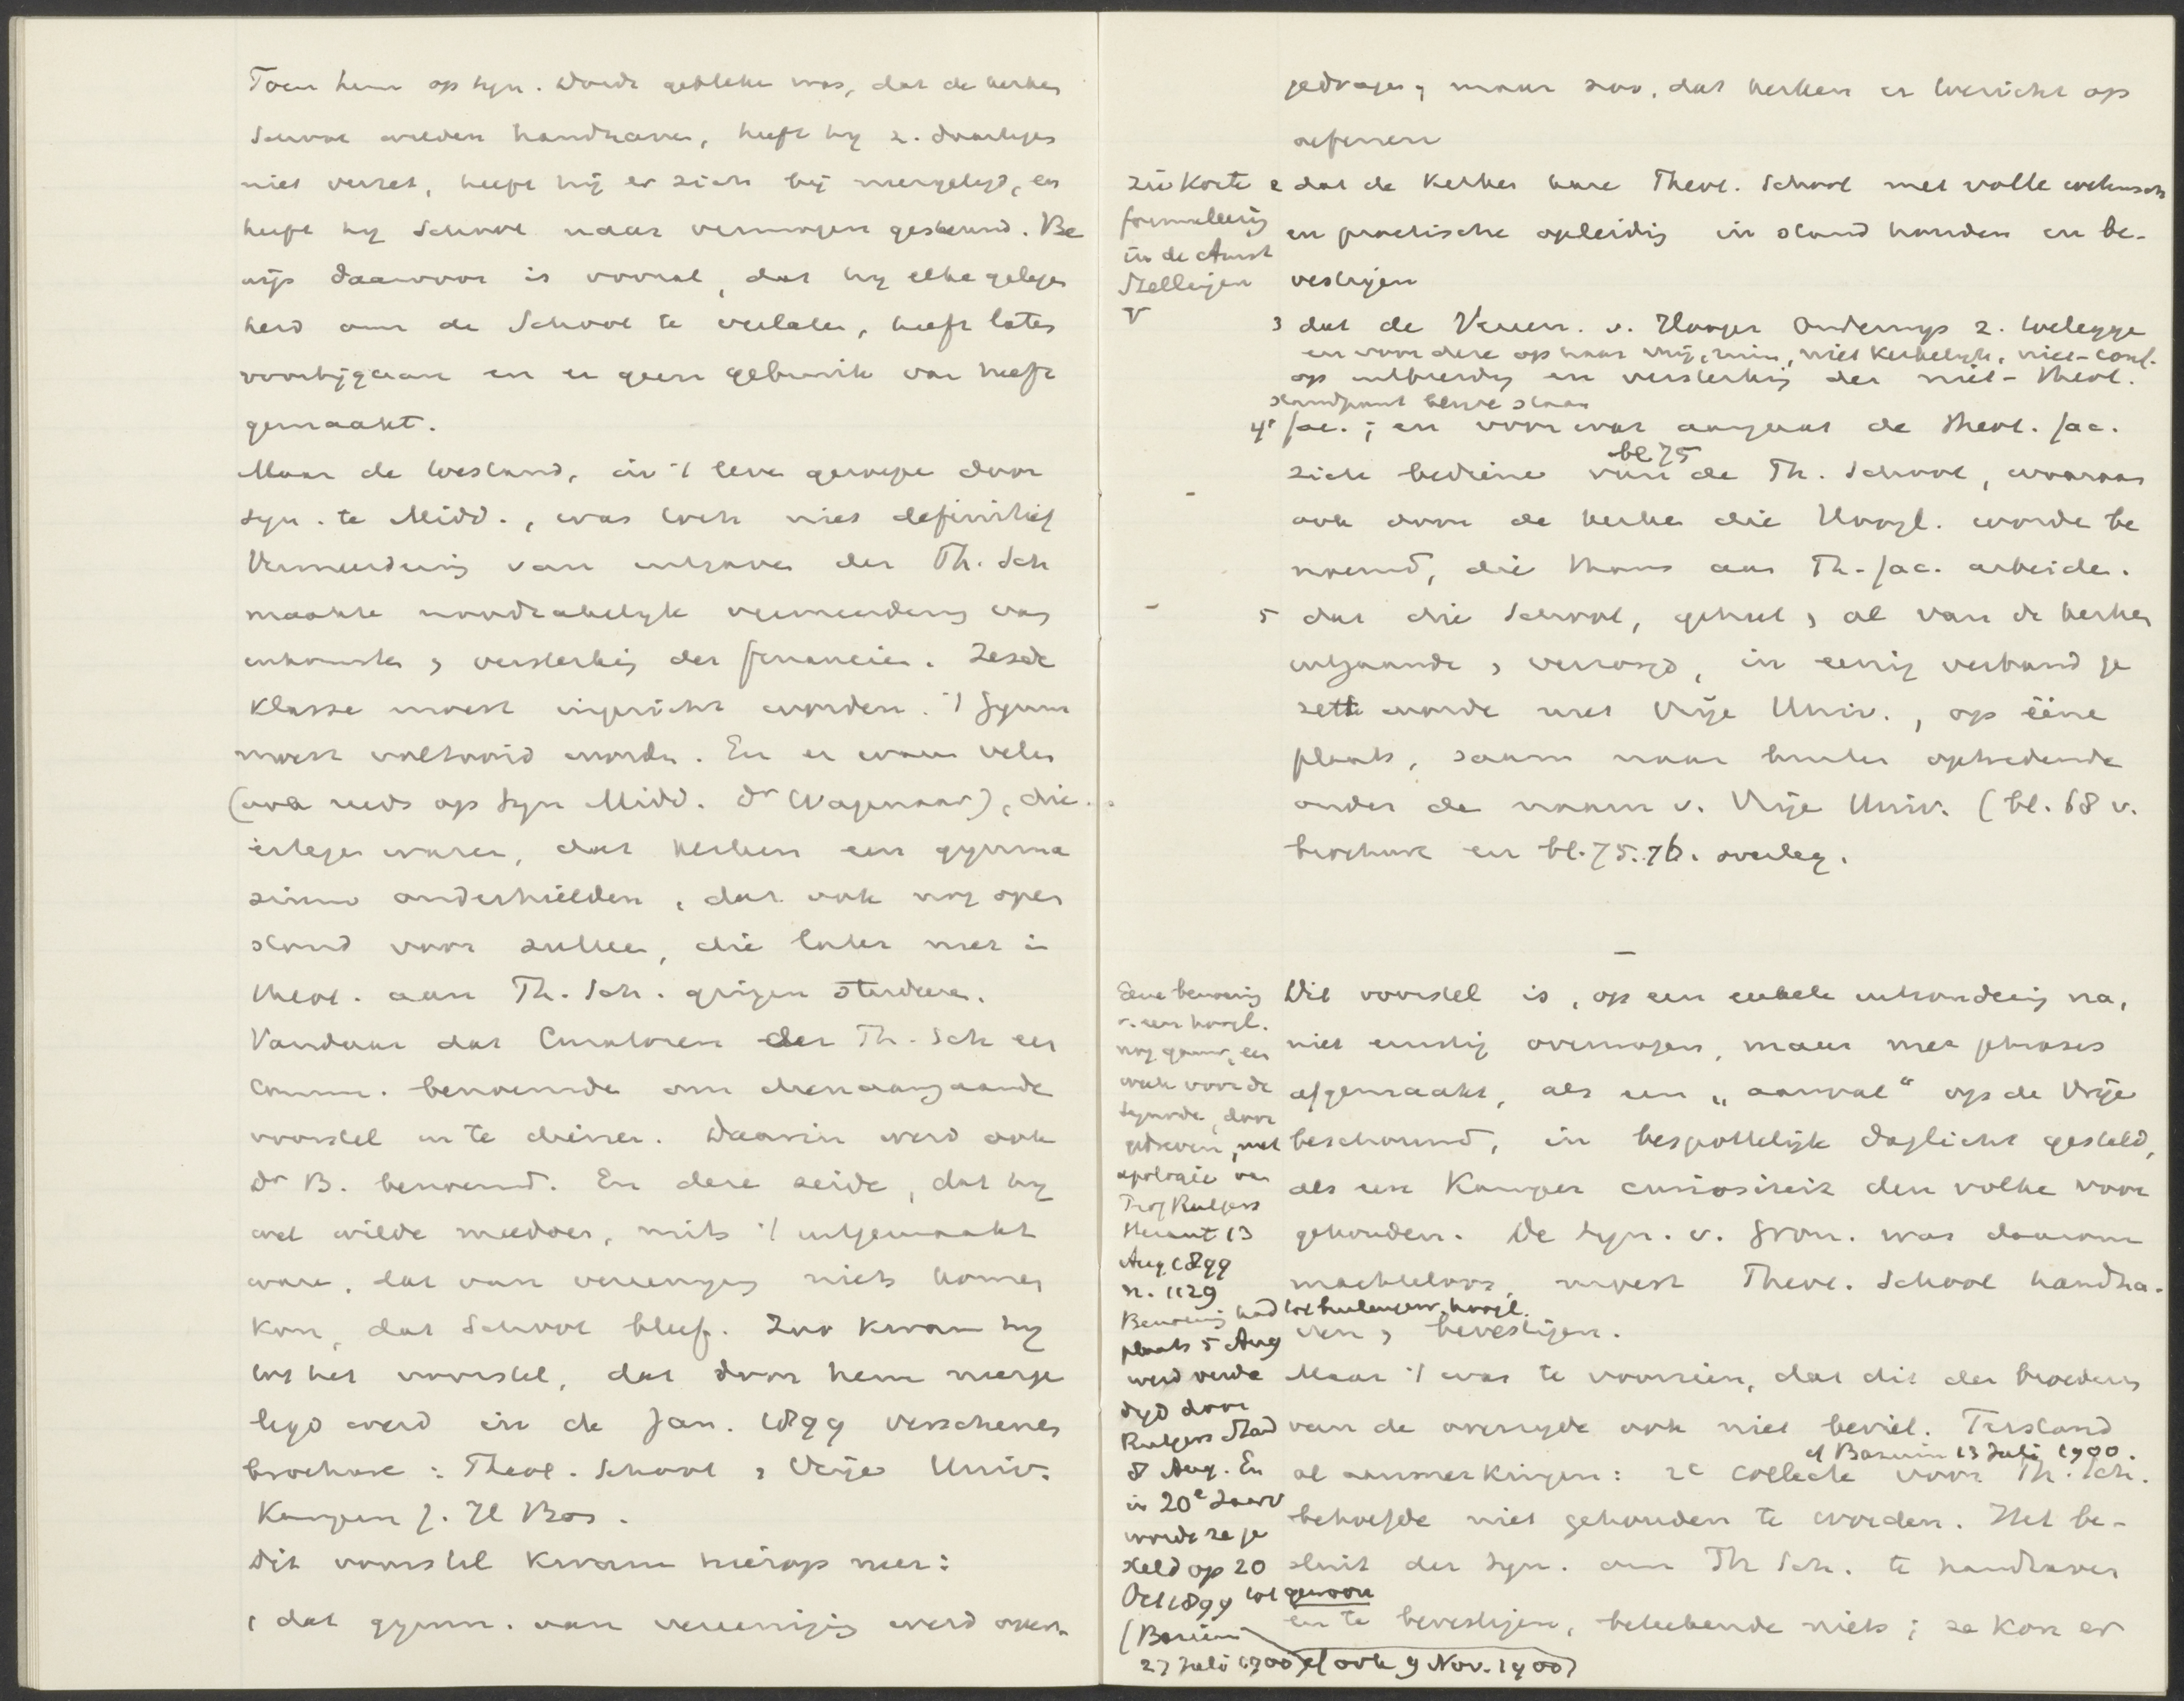 Toen hem op syn. Dordr. gebleken was, dat de kerken
School wilden handhaven, heeft hij z. daartegen
niet verzet, heeft hij er zich bij neergelegd, en
heeft hij School naar vermogen gesteund. Be
wijs daarvoor is vooral, dat hij elke gelegen
heid om de School te verlaten, heeft laten
voorbijgaan en er geen gebruik van heeft
gemaakt.
Maar de toestand, in 't leven geroepen door
syn. te Midd., was toch niet definitief
Vermeerdering van uitgaven der Th. Sch
maakte noodzakelijk vermeerdering van
inkomsten en versterking der financiën. Zesde
Klasse moest ingericht worden. 't Gymn
moest voltooid worden. En er waren velen
(ook reeds op Syn Midd. Dr Wagenaar), die
ertegen waren, dat kerken een gymna
sium onderhielden, dat ook nog open
stond voor zulken, die later niet in
theol. aan Th. Sch. gingen studeeren.
Vandaar dat Curatoren der Th. Sch een
Comm. benoemde om dienaangaande
voorstel in te dienen. Daarin werd ook
Dr B. benoemd. En deze zeide, dat hij
wel wilde meedoen, mits 't uitgemaakt
ware, dat van vereeniging niets komen
kon, dat School bleef. Zoo kwam hij
tot het voorstel, dat door hem neerge
legd werd in de Jan. 1899 verschenen
brochure: Theol. School en Vrije Univ.
Kampen J. H Bos.
Dit voorstel kwam hierop neer:
1 dat gymn. aan vereeniging werd overge
gedragen, maar zoo, dat kerken er toezicht op
oefenen
2 dat de Kerken hare Theol. School met volle wetensch
en practische opleiding in stand houden en be-
vestigen
3 dat de Vereen. v. Hooger Onderwijs z. toelegge
en voor deze op haar vrij, ruim, niet kerkelijk, niet-conf.
op uitbreiding en versterking der niet-theol.
standpunt blijve staan
4° fac.; en voor wat aangaat de theol. fac.
bl 75
zich bediene van de Th. School, waaraan
ook door de kerken die Hoogl. worden be
noemd, die thans aan Th. fac. arbeiden.
5 dat die School, geheel en al van de kerken
uitgaande en verzorgd, in eenig verband ge
zet worde met Vrije Univ., op ééne
plaats, saam naar buiten optredende
onder de naam v. Vrije Univ. (bl. 68 v.
brochure en bl. 75. 76. overleg.
formuleering
in de Amst
Stellingen
V
Dit voorstel is, op een enkele uitzondering na,
niet ernstig overwogen, maar met phrases
afgemaakt, als een „aanval" op de Vrije
beschouwd, in bespottelijk daglicht gesteld,
als een Kamper curiositeit den volke voor
gehouden. De Syn. v. Gron. was daarom
machteloos, moest Theol. School handha-
ven en bevestigen.
Maar 't was te voorzien, dat dit den broeders
van de overzijde ook niet beviel. Terstond
cf Bazuin 13 Juli 1900.
al aanmerkingen: 2e collecte voor Th. Sch.
behoefde niet gehouden te worden. Het be-
sluit der Syn. om Th Sch. te handhaven
en te bevestigen, beteekende niets; ze kon er
Eene benoeming
v. een hoogl.
nog gauw, een
week voor de
Synode, door
gedreven, met
apologie van
Prof Rutgers
Heraut 13
Aug 1899
n. 1129
Benoeming had tot buitengew. hoogl.
plaats 5 Aug
werd verde
digd door
Rutgers Stand
8 Aug. En
in 20e Jaarv
worde ze ge
steld op 20
Oct 1899 tot gewoon
(Bazuin
27 Juli 1900 cf ook 9 Nov. 1900)